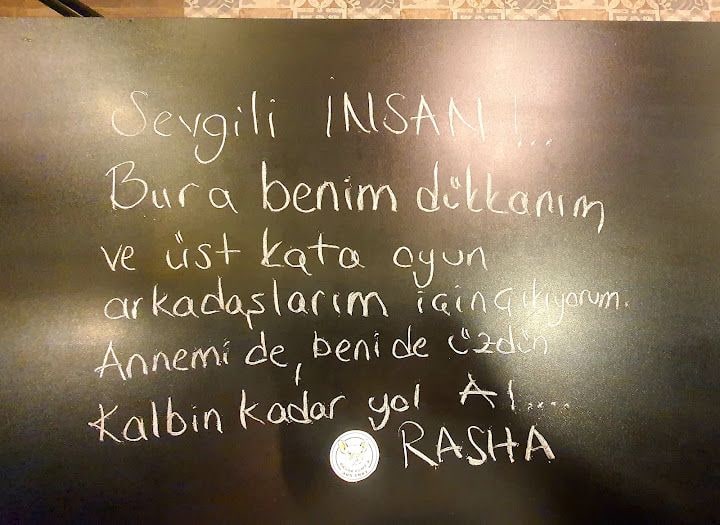 Sevgili İNSAN!...
Bura benim dükkanım
ve üst kata oyun
arkadaşlarım için çıkıyorum.
Annemi de, beni de üzdün
Kalbin kadar yol Al....
RASHA